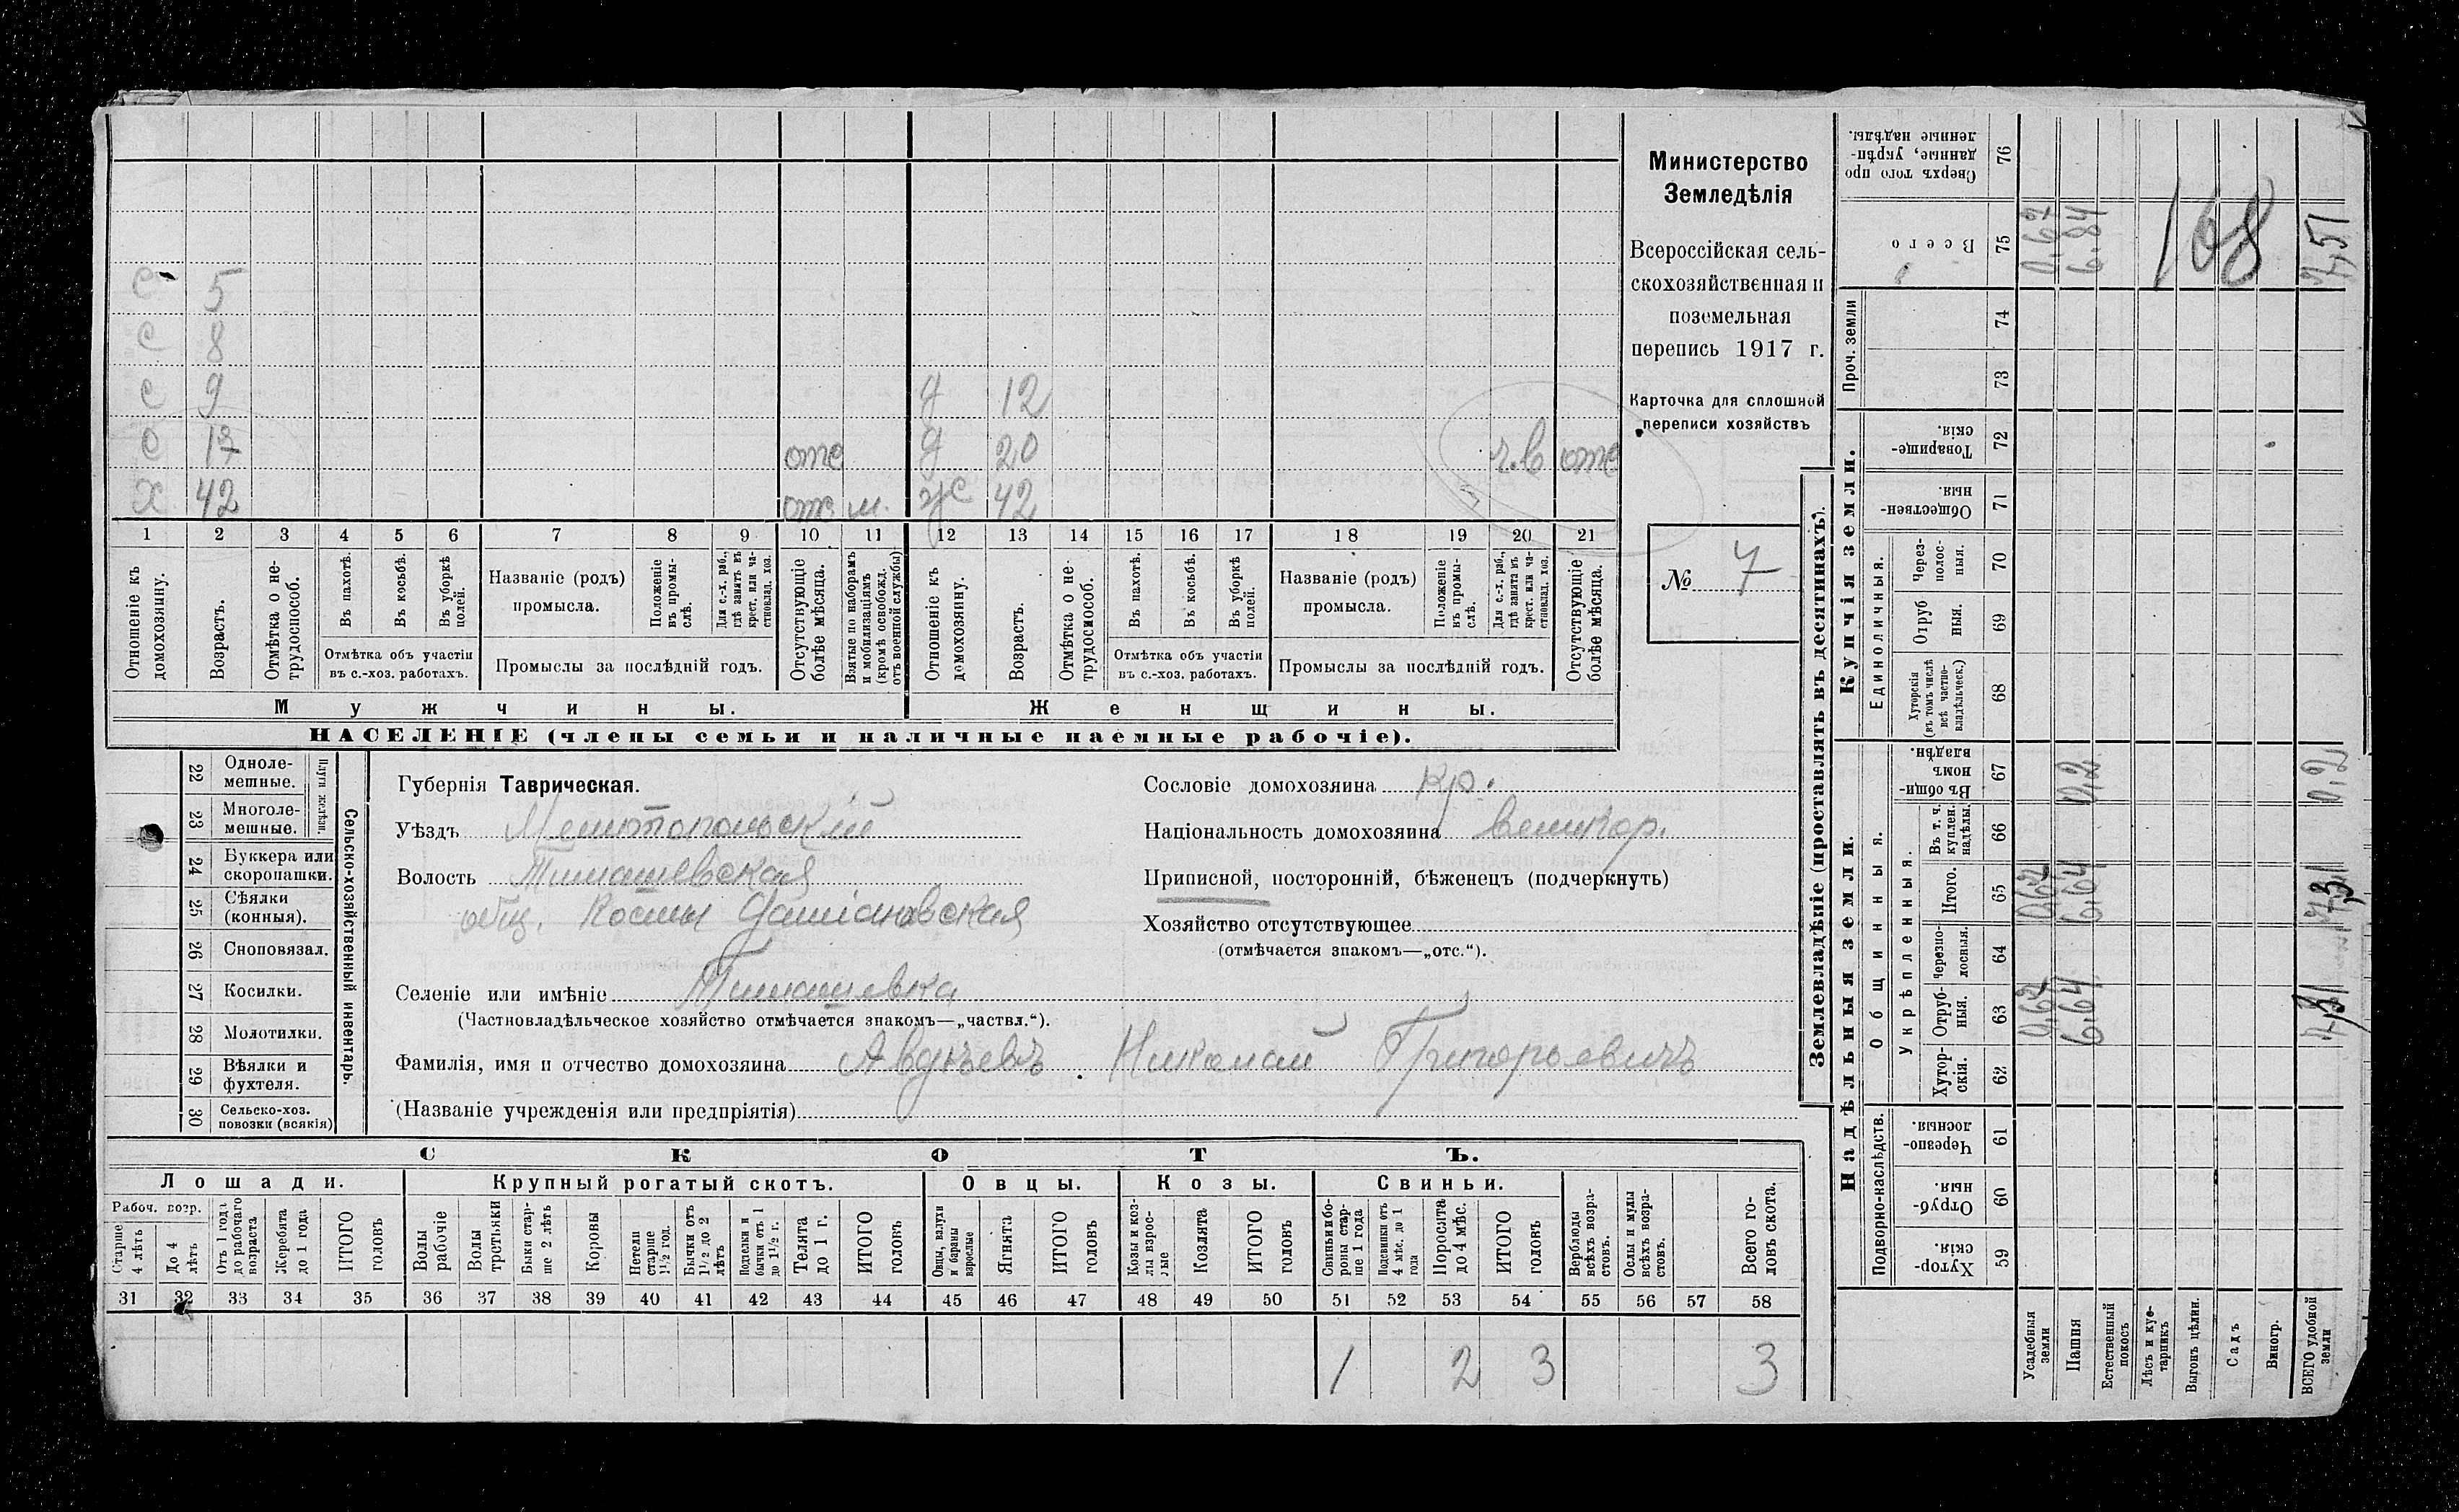 Министерство
Земледѣлія
Всероссійская сель-
скохозяйственная и
поземельная
перепись 1917 г.
Карточка для сплошной
переписи хозяйствъ
№ 7
с 5
с 8
с 9 д 12
с 17 отс д 20 отс
х 42 отс м. ж 42
1 2 3 4 5 6 7 8 9 10 11 12 13 14 15 16 17 18 19 20 21
Отношеніе къ домохозяину.
Возрастъ.
Отмѣтка о не-трудоспособ.
Въ пахотѣ.
Въ косьбѣ.
Въ уборкѣ полей.
Отмѣтка объ участіи
въ с.-хоз. работахъ.
Названіе (родъ)
промысла.
Положеніе въ промы-слѣ.
Для с.-х. раб., гдѣ занятъ въ крест. или ча-стновлад. хоз.
Промыслы за послѣдній годъ.
Отсутствующіе болѣе мѣсяца.
Взятые по наборамъ и мобилизаціямъ (кромѣ освобожд. отъ военной службы)
Отношеніе къ домохозяину.
Возрастъ.
Отмѣтка о не-трудоспособ.
Въ пахотѣ.
Въ косьбѣ.
Въ уборкѣ полей.
Отмѣтка объ участіи
въ с.-хоз. работахъ.
Названіе (родъ)
промысла.
Положеніе въ промы-слѣ.
Для с.-х. раб., гдѣ занята въ крест. или ча-стновлад. хоз.
Промыслы за послѣдній годъ.
Отсутствующіе болѣе мѣсяца.
Мужчины. Женщины.
НАСЕЛЕНІЕ (члены семьи и наличные наемные рабочіе).
Сельско-хозяйственный инвентарь.
Плуги желѣзн.
22 Одноле-мешные.
23 Многоле-мешные.
24 Буккера или скоропашки.
25 Сѣялки (конныя).
26 Сноповязал.
27 Косилки.
28 Молотилки.
29 Вѣялки и фухтеля.
30 Сельско-хоз. повозки (всякія)
Губернія Таврическая.
Уѣздъ Мелитопольскій
Волость Тимашевская
общ. Космы Даміановская
Селеніе или имѣніе Тимашевка
(Частновладѣльческое хозяйство отмѣчается знакомъ—„частвл.“).
Фамилія, имя и отчество домохозяина Авдѣевъ Николай Григорьевичъ
(Названіе учрежденія или предпріятія)
Сословіе домохозяина кр.
Національность домохозяина великор.
Приписной, посторонній, бѣженецъ (подчеркнуть)
Хозяйство отсутствующее
(отмѣчается знакомъ—„отс.“).
СКОТЪ.
Лошади. Крупный рогатый скотъ. Овцы. Козы. Свиньи.
Рабоч. возр.
Старше 4 лѣтъ
До 4 лѣтъ
Отъ 1 года до рабочаго возраста
Жеребята до 1 года
ИТОГО головъ
Волы рабочіе
Волы третьяки
Быки стар-ше 2 лѣтъ
Коровы
Нетели старше 1½ год.
Бычки отъ 1½ до 2 лѣтъ
Подтелки и бычки отъ 1 до 1½ г.
Телята до 1 г.
ИТОГО головъ
Овцы, валухи и бараны взрослые
Ягнята
ИТОГО головъ
Козы и коз-лы взрос-лые
Козлята
ИТОГО головъ
Свиньи и бо-ровы стар-ше 1 года
Подсвинки отъ 4 мѣс. до 1 года
Поросята до 4 мѣс.
ИТОГО головъ
Верблюды всѣхъ возра-стовъ.
Ослы и мулы всѣхъ возра-стовъ.
Всего го-ловъ скота.
31 32 33 34 35 36 37 38 39 40 41 42 43 44 45 46 47 48 49 50 51 52 53 54 55 56 57 58
1 2 3 3
Землевладѣніе (проставлять въ десятинахъ).
Надѣльныя земли. Купчія земли. Проч. земли
Подворно-наслѣдств.
Общинныя.
Укрѣпленныя.
Единоличныя.
59 Хутор-скія.
60 Отруб-ныя.
61 Черезпо-лосныя.
62 Хутор-скія.
63 Отруб-ныя. 0,67 6,64 7,31
64 Черезпо-лосныя.
65 Итого. 0,67 6,64 7,31
66 Въ т. ч. куплен. надѣлы.
67 Въ общи-номъ владѣн. 0,2 0,2
68 Хуторскія (въ томъ числѣ всѣ частно-владѣльческ.)
69 Отруб ныя.
70 Через-полос-ныя.
71 Обществен-ныя.
72 Товарище-скія.
73
74
75 Всего 0,67 6,84 7,51
76 Сверхъ того про данные, укрѣп-ленные надѣлы.
168
Усадебныя земли
Пашня
Естественный покосъ
Лѣсъ и кус-тарникъ
Выгонъ цѣлин.
Садъ
Виногр.
ВСЕГО удобной земли